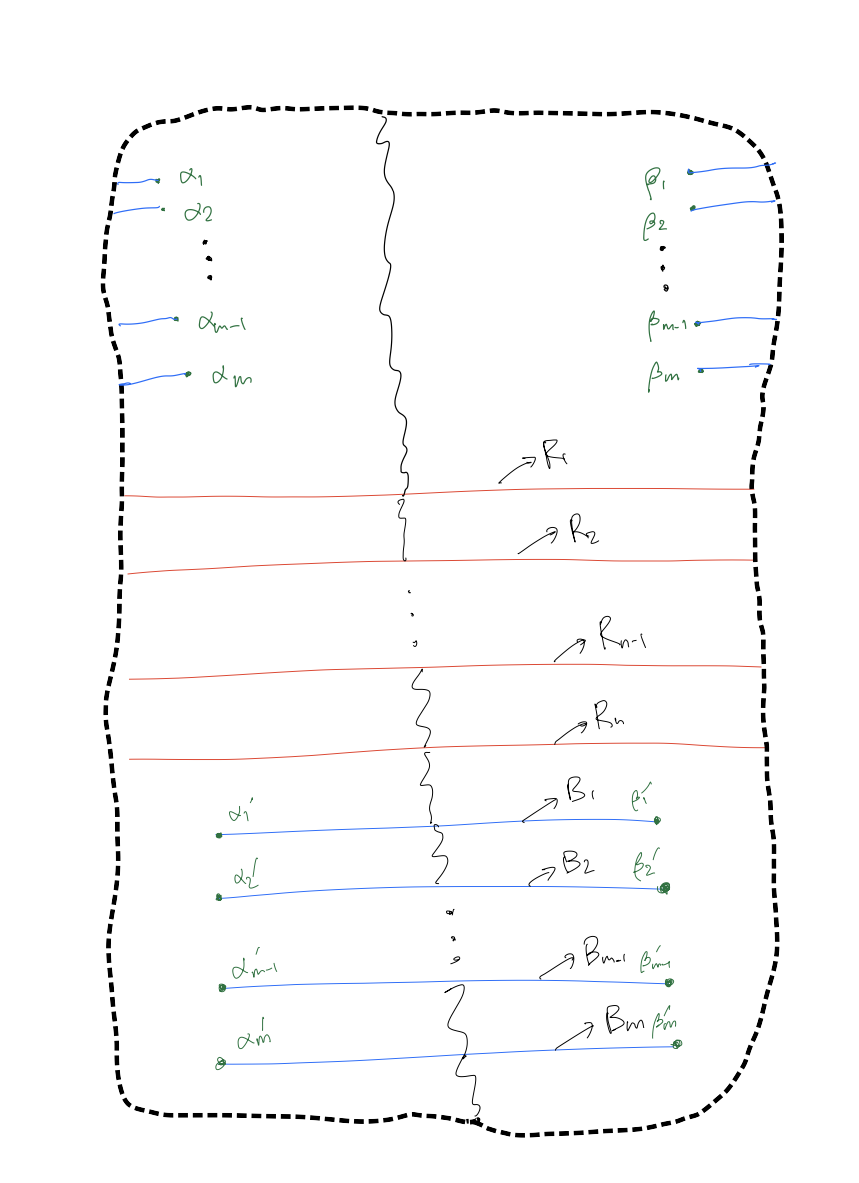 α₁ β₁
α₂ β₂
αₘ₋₁ βₘ₋₁
αₘ βₘ
R₁
R₂
Rₙ₋₁
Rₙ
α₁′ B₁ β₁′
α₂′ B₂ β₂′
α′ₘ₋₁ Bₘ₋₁ β′ₘ₋₁
α′ₘ Bₘ β′ₘ